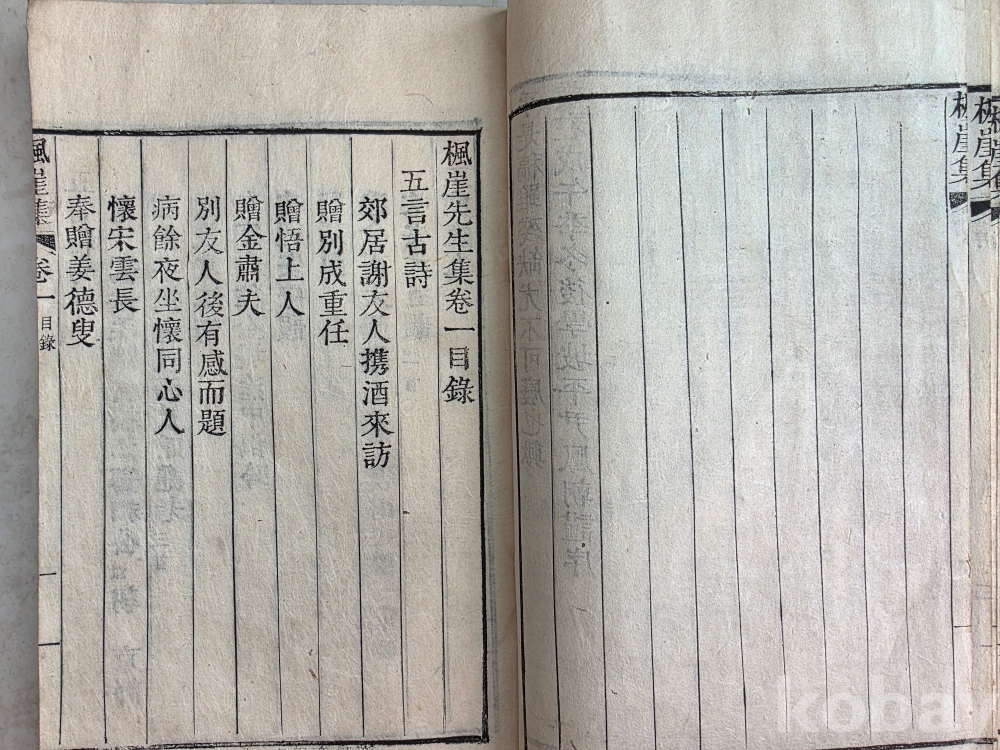 楓崖集
楓崖集
楓崖集
楓崖先生集卷一目錄
五言古詩
郊居謝友人携酒來訪
贈別成重任
贈悟上人
贈金肅夫
別友人後有感而題
病餘夜坐懷同心人
懷宋雲長
奉贈姜德叟
楓崖集 卷一 目錄 一
kobay